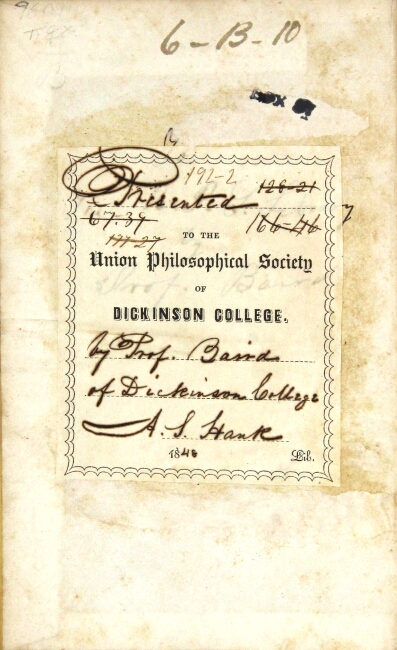 6-B-10
BOX
192-2
Presented
128-21
67.39
166-46
177-27
TO THE
Union Philosophical Society
OF
DICKINSON COLLEGE.
by Prof. Baird
of Dickinson College
A. S. Hank
1848 Lib.